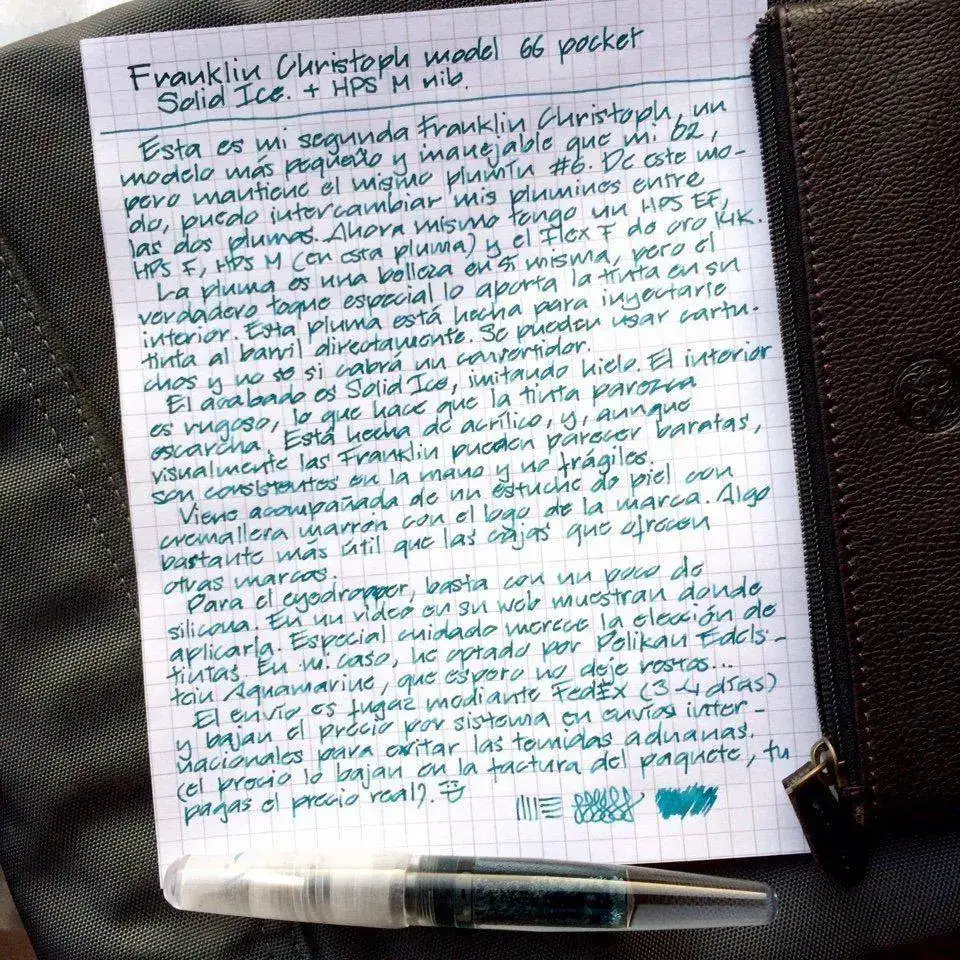 Franklin Christoph model 66 pocket
Solid Ice. + HPS M nib.
Esta es mi segunda Franklin Christoph, un
modelo más pequeño y manejable que mi 02,
pero mantiene el mismo plumín #6. De este mo-
do, puedo intercambiar mis plumines entre
las dos plumas. Ahora mismo tengo un HPS EF,
HPS F, HPS M (en esta pluma) y el Flex F de oro 14K.
La pluma es una belleza en sí misma, pero el
verdadero toque especial lo aporta la tinta en su
interior. Esta pluma está hecha para inyectarle
tinta al barril directamente. Se pueden usar cartu-
chos y no se si cabrá un convertidor.
El acabado es Solid Ice, imitando hielo. El interior
es rugoso, lo que hace que la tinta parezca
escarcha. Está hecha de acrílico, y, aunque
visualmente las Franklin pueden parecer baratas,
son consistentes en la mano y no frágiles.
Viene acompañada de un estuche de piel con
cremallera marrón con el logo de la marca. Algo
bastante más útil que las cajas que ofrecen
otras marcas.
Para el eyedropper, basta con un poco de
silicona. En un vídeo en su web muestran donde
aplicarla. Especial cuidado merece la elección de
tintas. En mi caso, he optado por Pelikan Edels-
tein Aquamarine, que espero no deje restos...
El envío es fugaz mediante FedEx (3-4 días)
y bajan el precio por sistema en envíos inter-
nacionales para evitar las temidas aduanas.
(el precio lo bajan en la factura del paquete, tu
pagas el precio real).